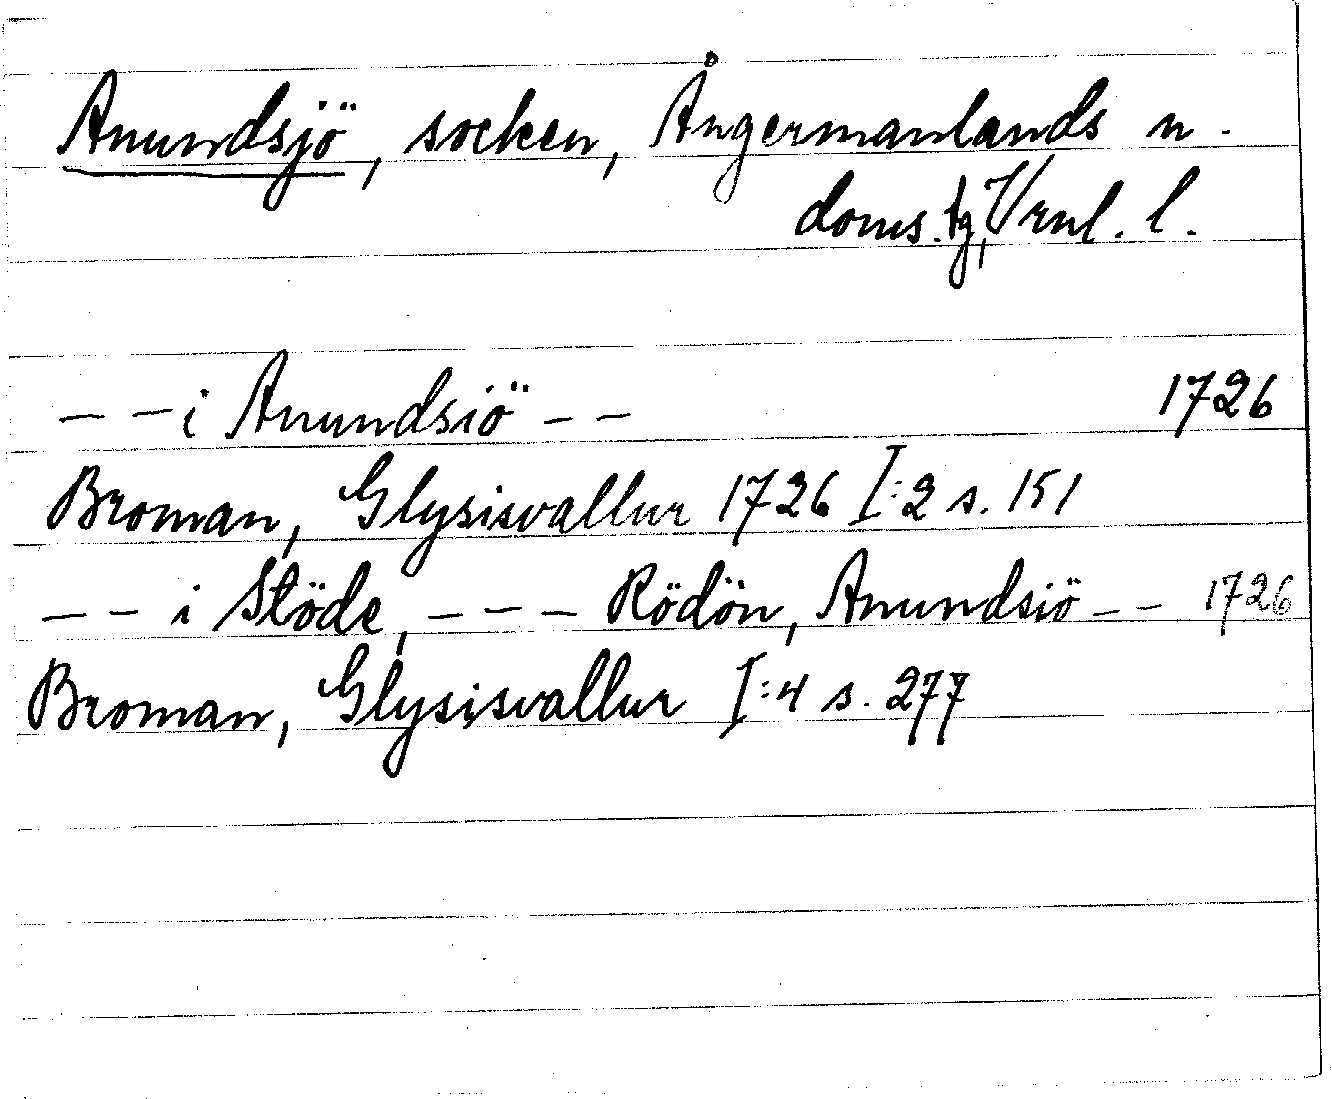 Anundsjö, socken, Ångermanlands n.
doms.tg, Vrnl. l.
– – i Anundsiö – – 1726
Broman, Glysisvallur 1726 I:2 s. 151
– – i Stöde, – – – Rödön, Anundsiö – – 1726
Broman, Glysisvallur I:4 s. 277